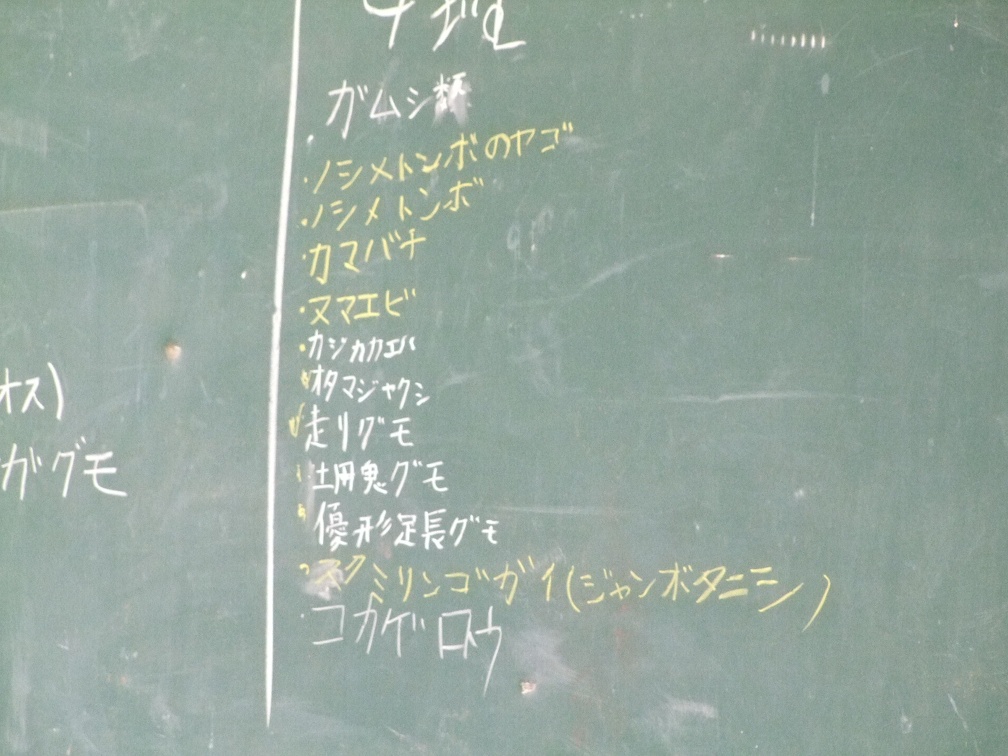 オス)
ガグモ
4班
・ガムシ類
・ノシメトンボのヤゴ
・ノシメトンボ
・カマバチ
・ヌマエビ
・カジカカエル
・オタマジャクシ
走リグモ
・土用鬼グモ
・優形足長グモ
・スクミリンゴガイ(ジャンボタニシ)
・コカゲロウ